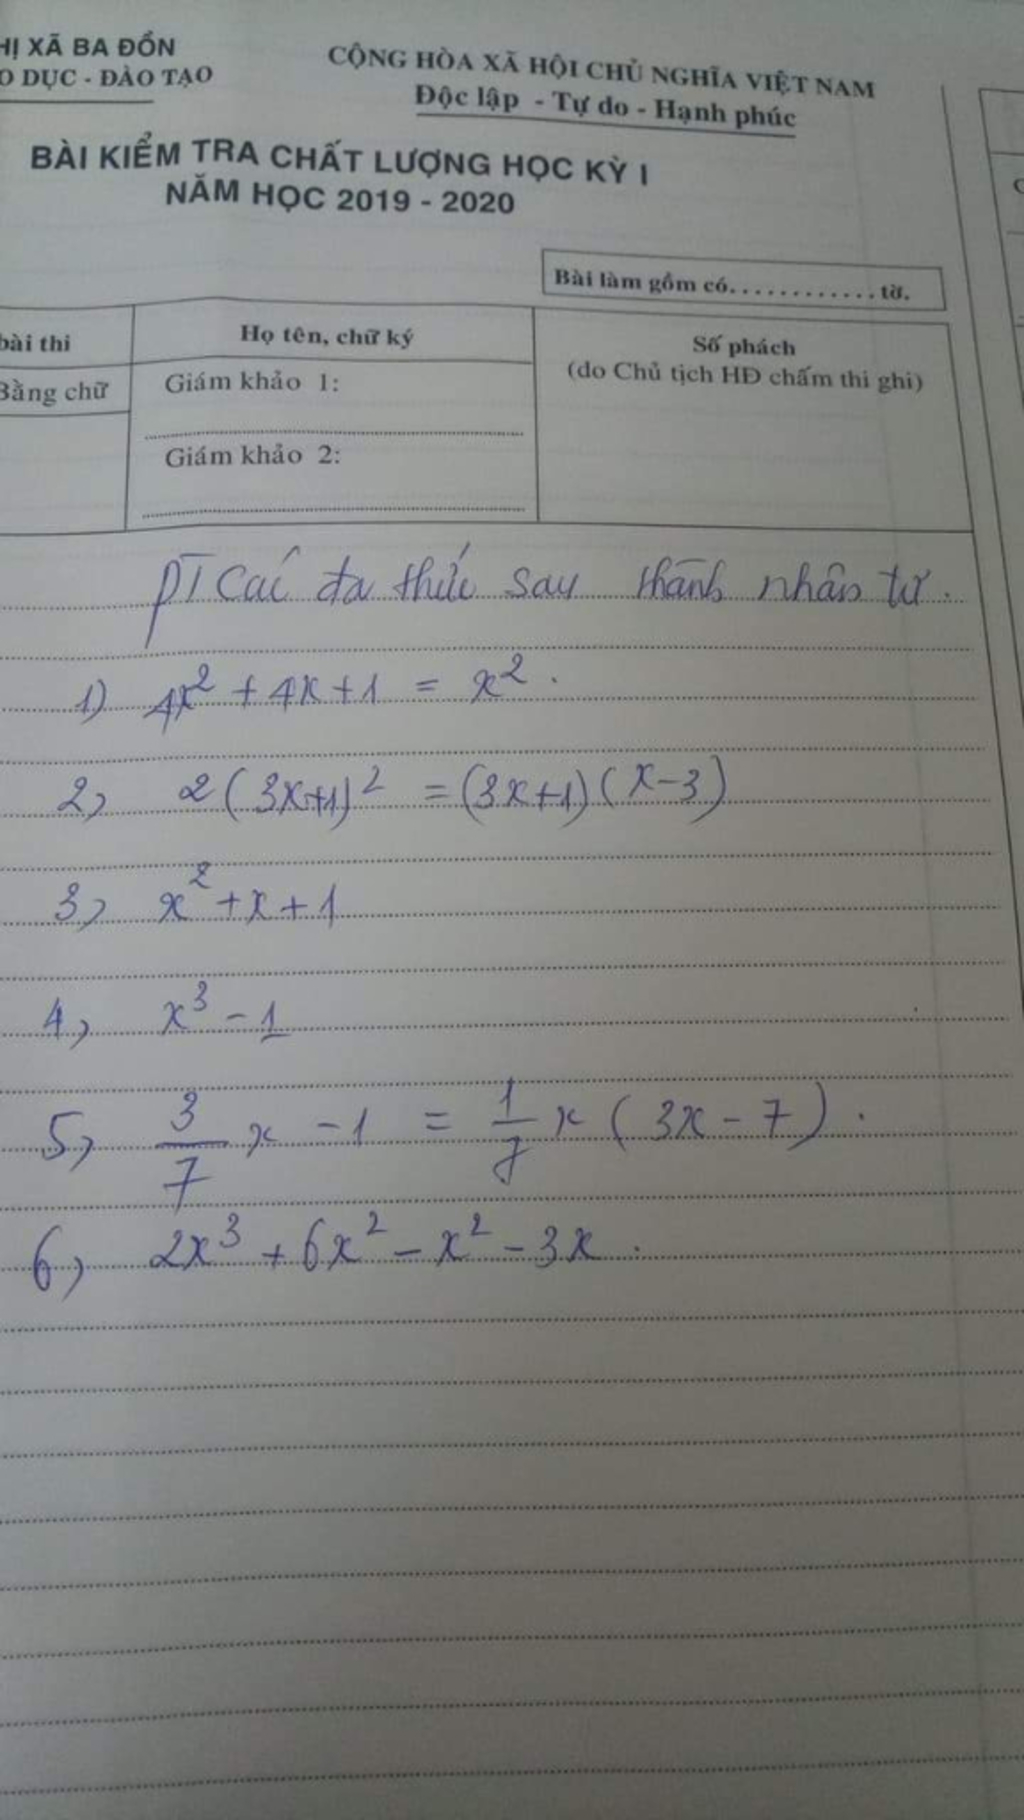 HỊ XÃ BA ĐỒN
O DỤC - ĐÀO TẠO
CỘNG HÒA XÃ HỘI CHỦ NGHĨA VIỆT NAM
Độc lập - Tự do - Hạnh phúc
BÀI KIỂM TRA CHẤT LƯỢNG HỌC KỲ I
NĂM HỌC 2019 - 2020
Bài làm gồm có............tờ.
bài thi
Họ tên, chữ ký
Số phách
(do Chủ tịch HĐ chấm thi ghi)
Bằng chữ
Giám khảo 1:
Giám khảo 2:
PT các đa thức sau thành nhân tử.
1) 4x² + 4x + 1 = x².
2) 2(3x+1)² = (3x+1)(x-3)
3) x² + x + 1
4) x³ - 1
5) 3/7 x - 1 = 1/7 x (3x - 7).
6) 2x³ + 6x² - x² - 3x.